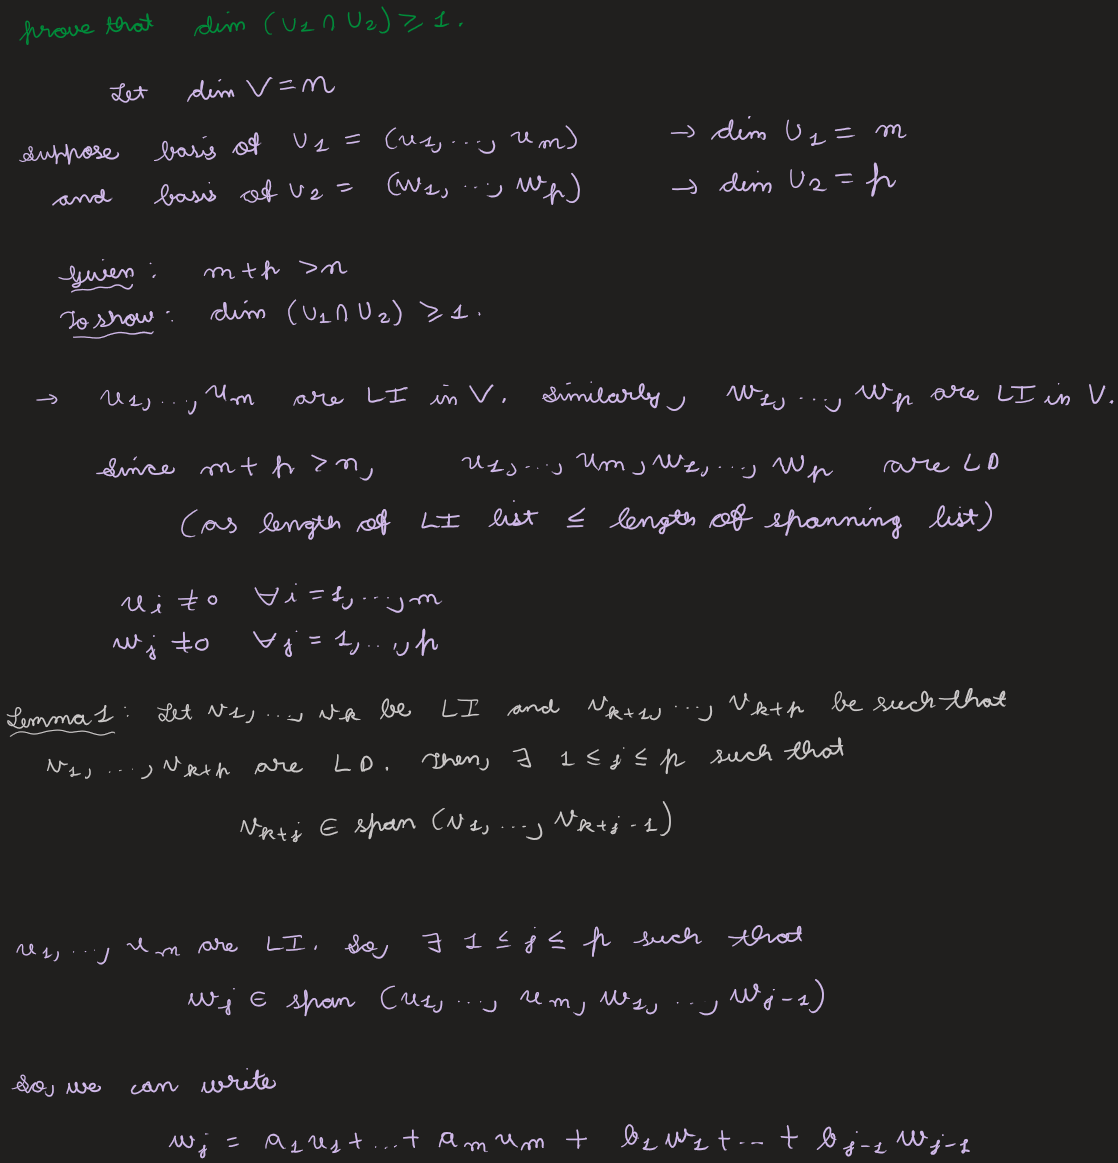 prove that dim (U1 ∩ U2) ≥ 1.
Let dim V = n
suppose basis of U1 = (u1, ..., um) → dim U1 = m
and basis of U2 = (w1, ..., wp) → dim U2 = p
Given: m + p > n
To show: dim (U1 ∩ U2) ≥ 1.
→ u1, ..., um are LI in V. Similarly, w1, ..., wp are LI in V.
Since m + p > n, u1, ..., um, w1, ..., wp are LD
(as length of LI list ≤ length of spanning list)
ui ≠ 0 ∀ i = 1, ..., m
wj ≠ 0 ∀ j = 1, ..., p
Lemma 1: Let v1, ..., vk be LI and vk+1, ..., vk+p be such that
v1, ..., vk+p are LD. Then, ∃ 1 ≤ j ≤ p such that
vk+j ∈ span (v1, ..., vk+j-1)
u1, ..., um are LI. So, ∃ 1 ≤ j ≤ p such that
wj ∈ span (u1, ..., um, w1, ..., wj-1)
So, we can write
wj = a1u1 + ... + amum + b1w1 + ... + bj-1 wj-1